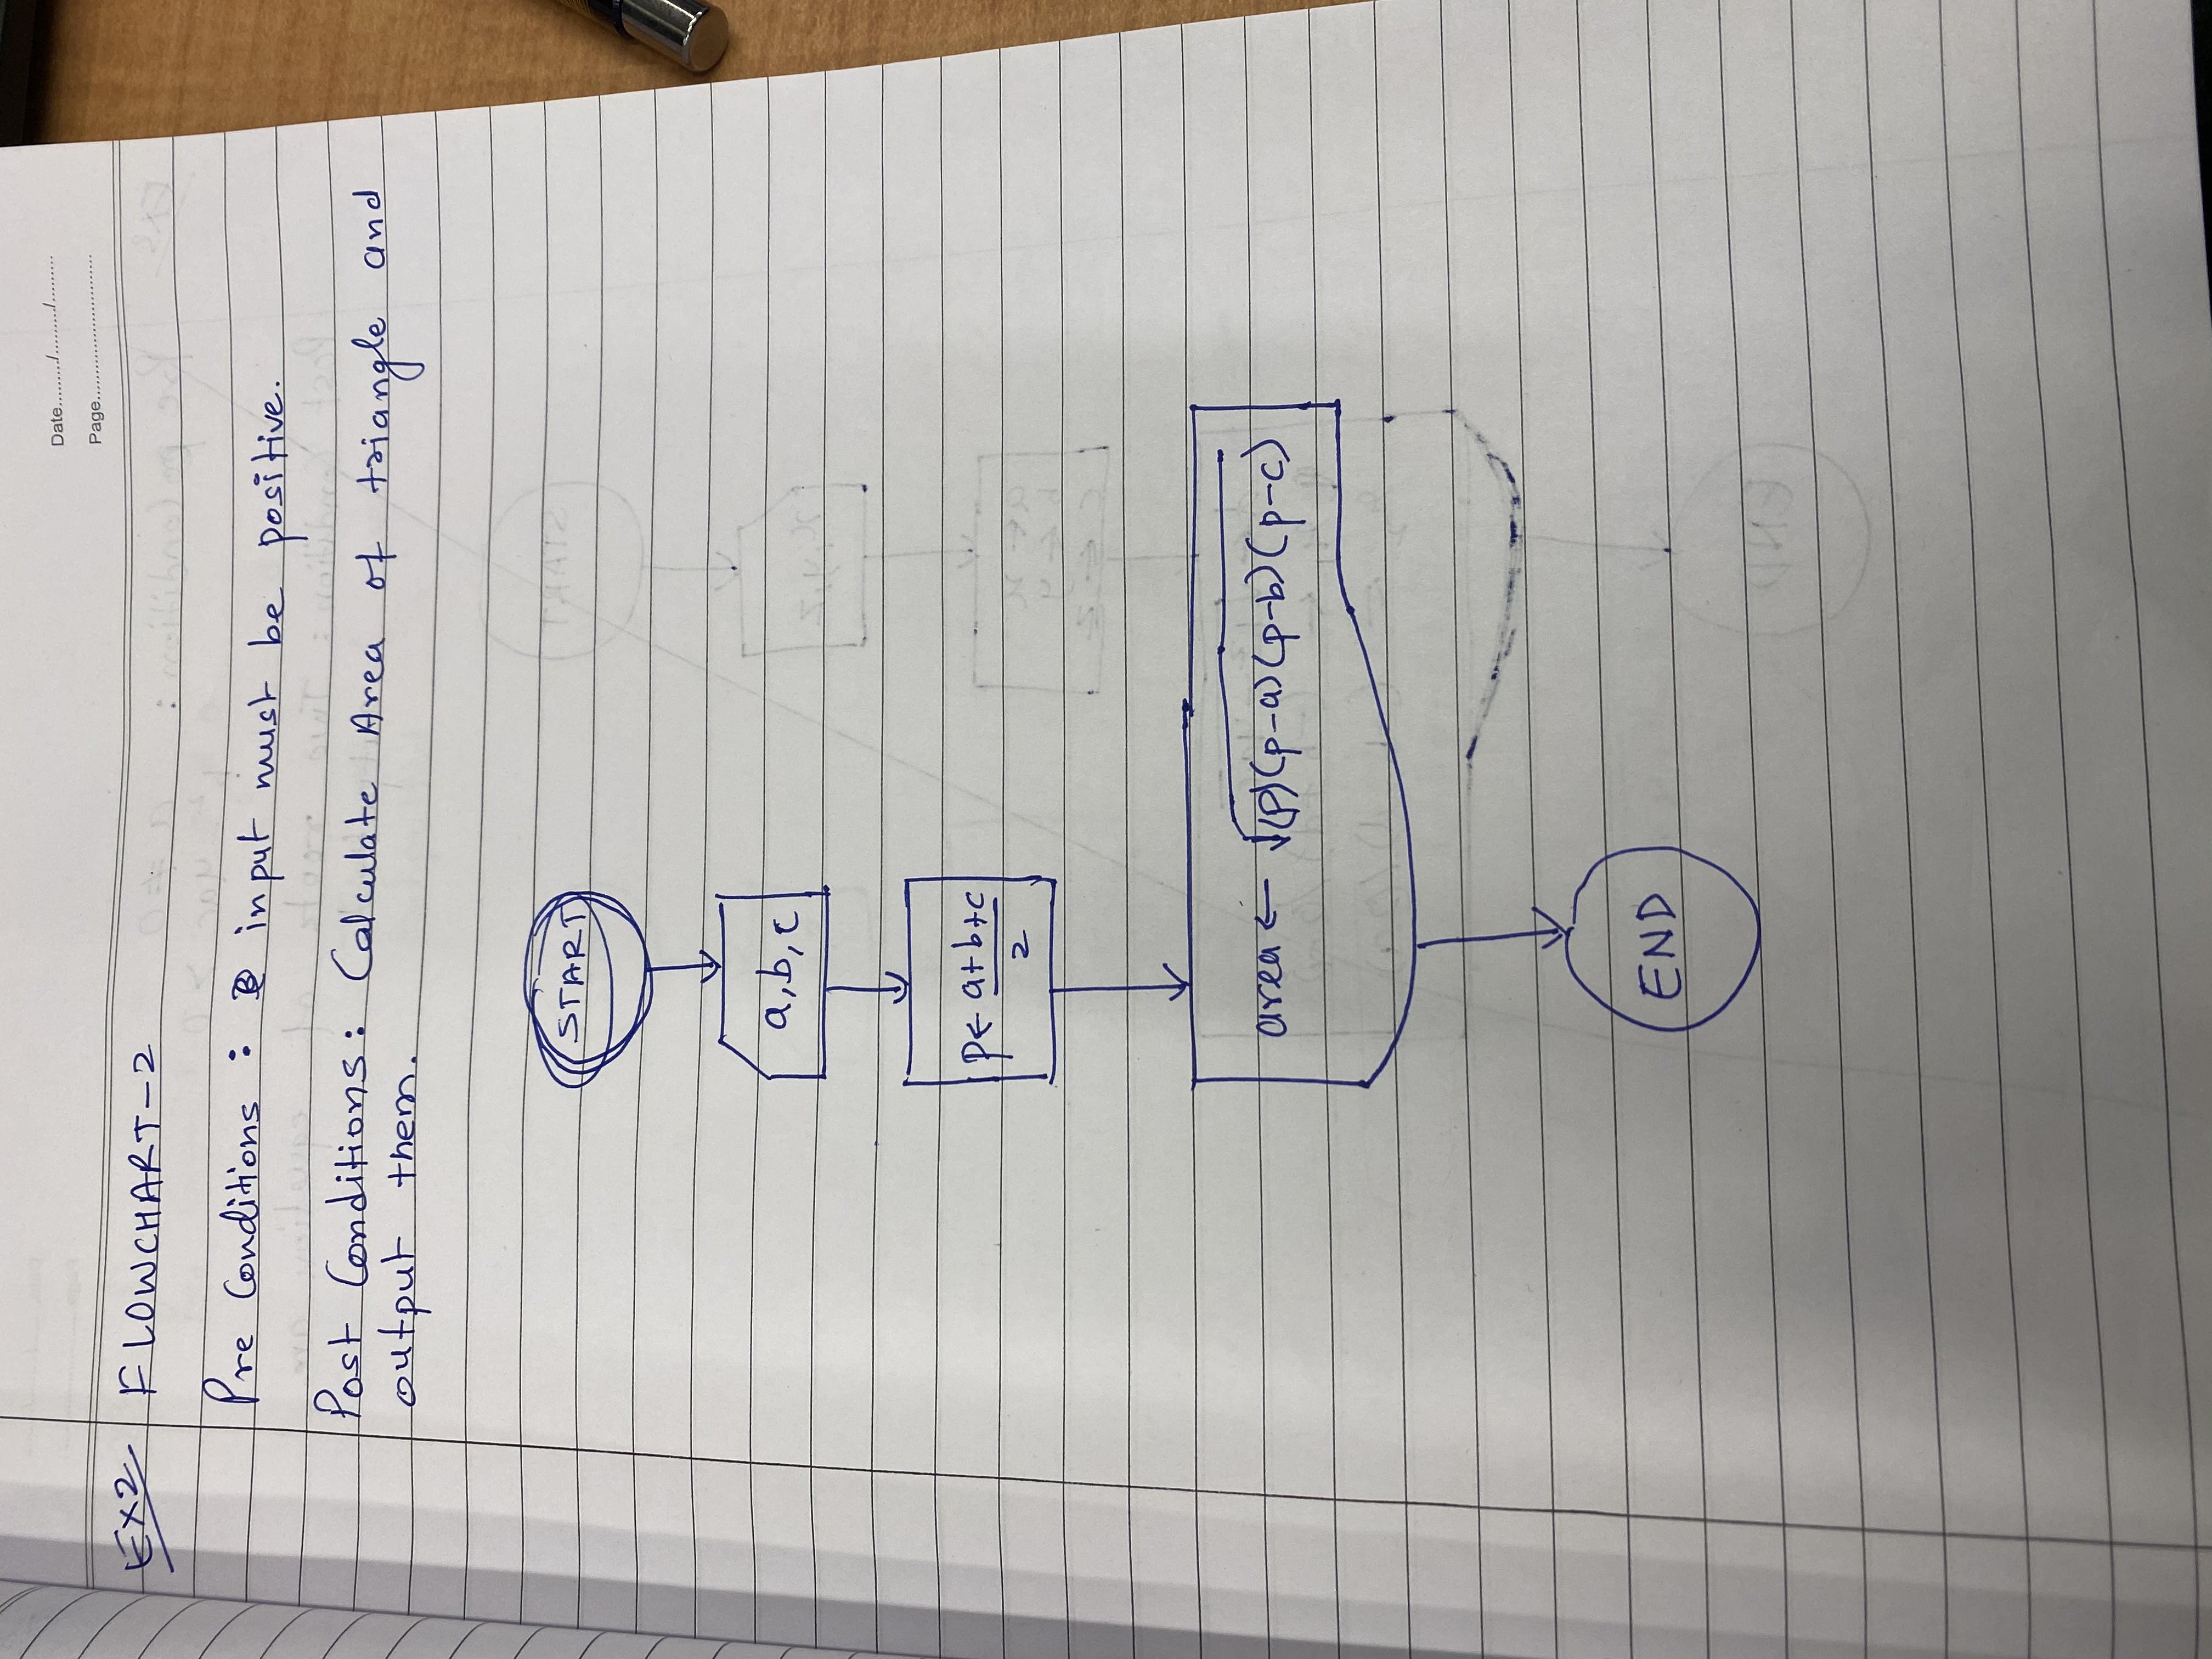 Date........./........./.........
Page.............................
EX2 FLOWCHART-2
Pre Conditions : input must be positive.
Post Conditions: Calculate Area of triangle and
output them.
START
a, b, c
p← a+b+c
2
area ← √(p)(p-a)(p-b)(p-c)
END